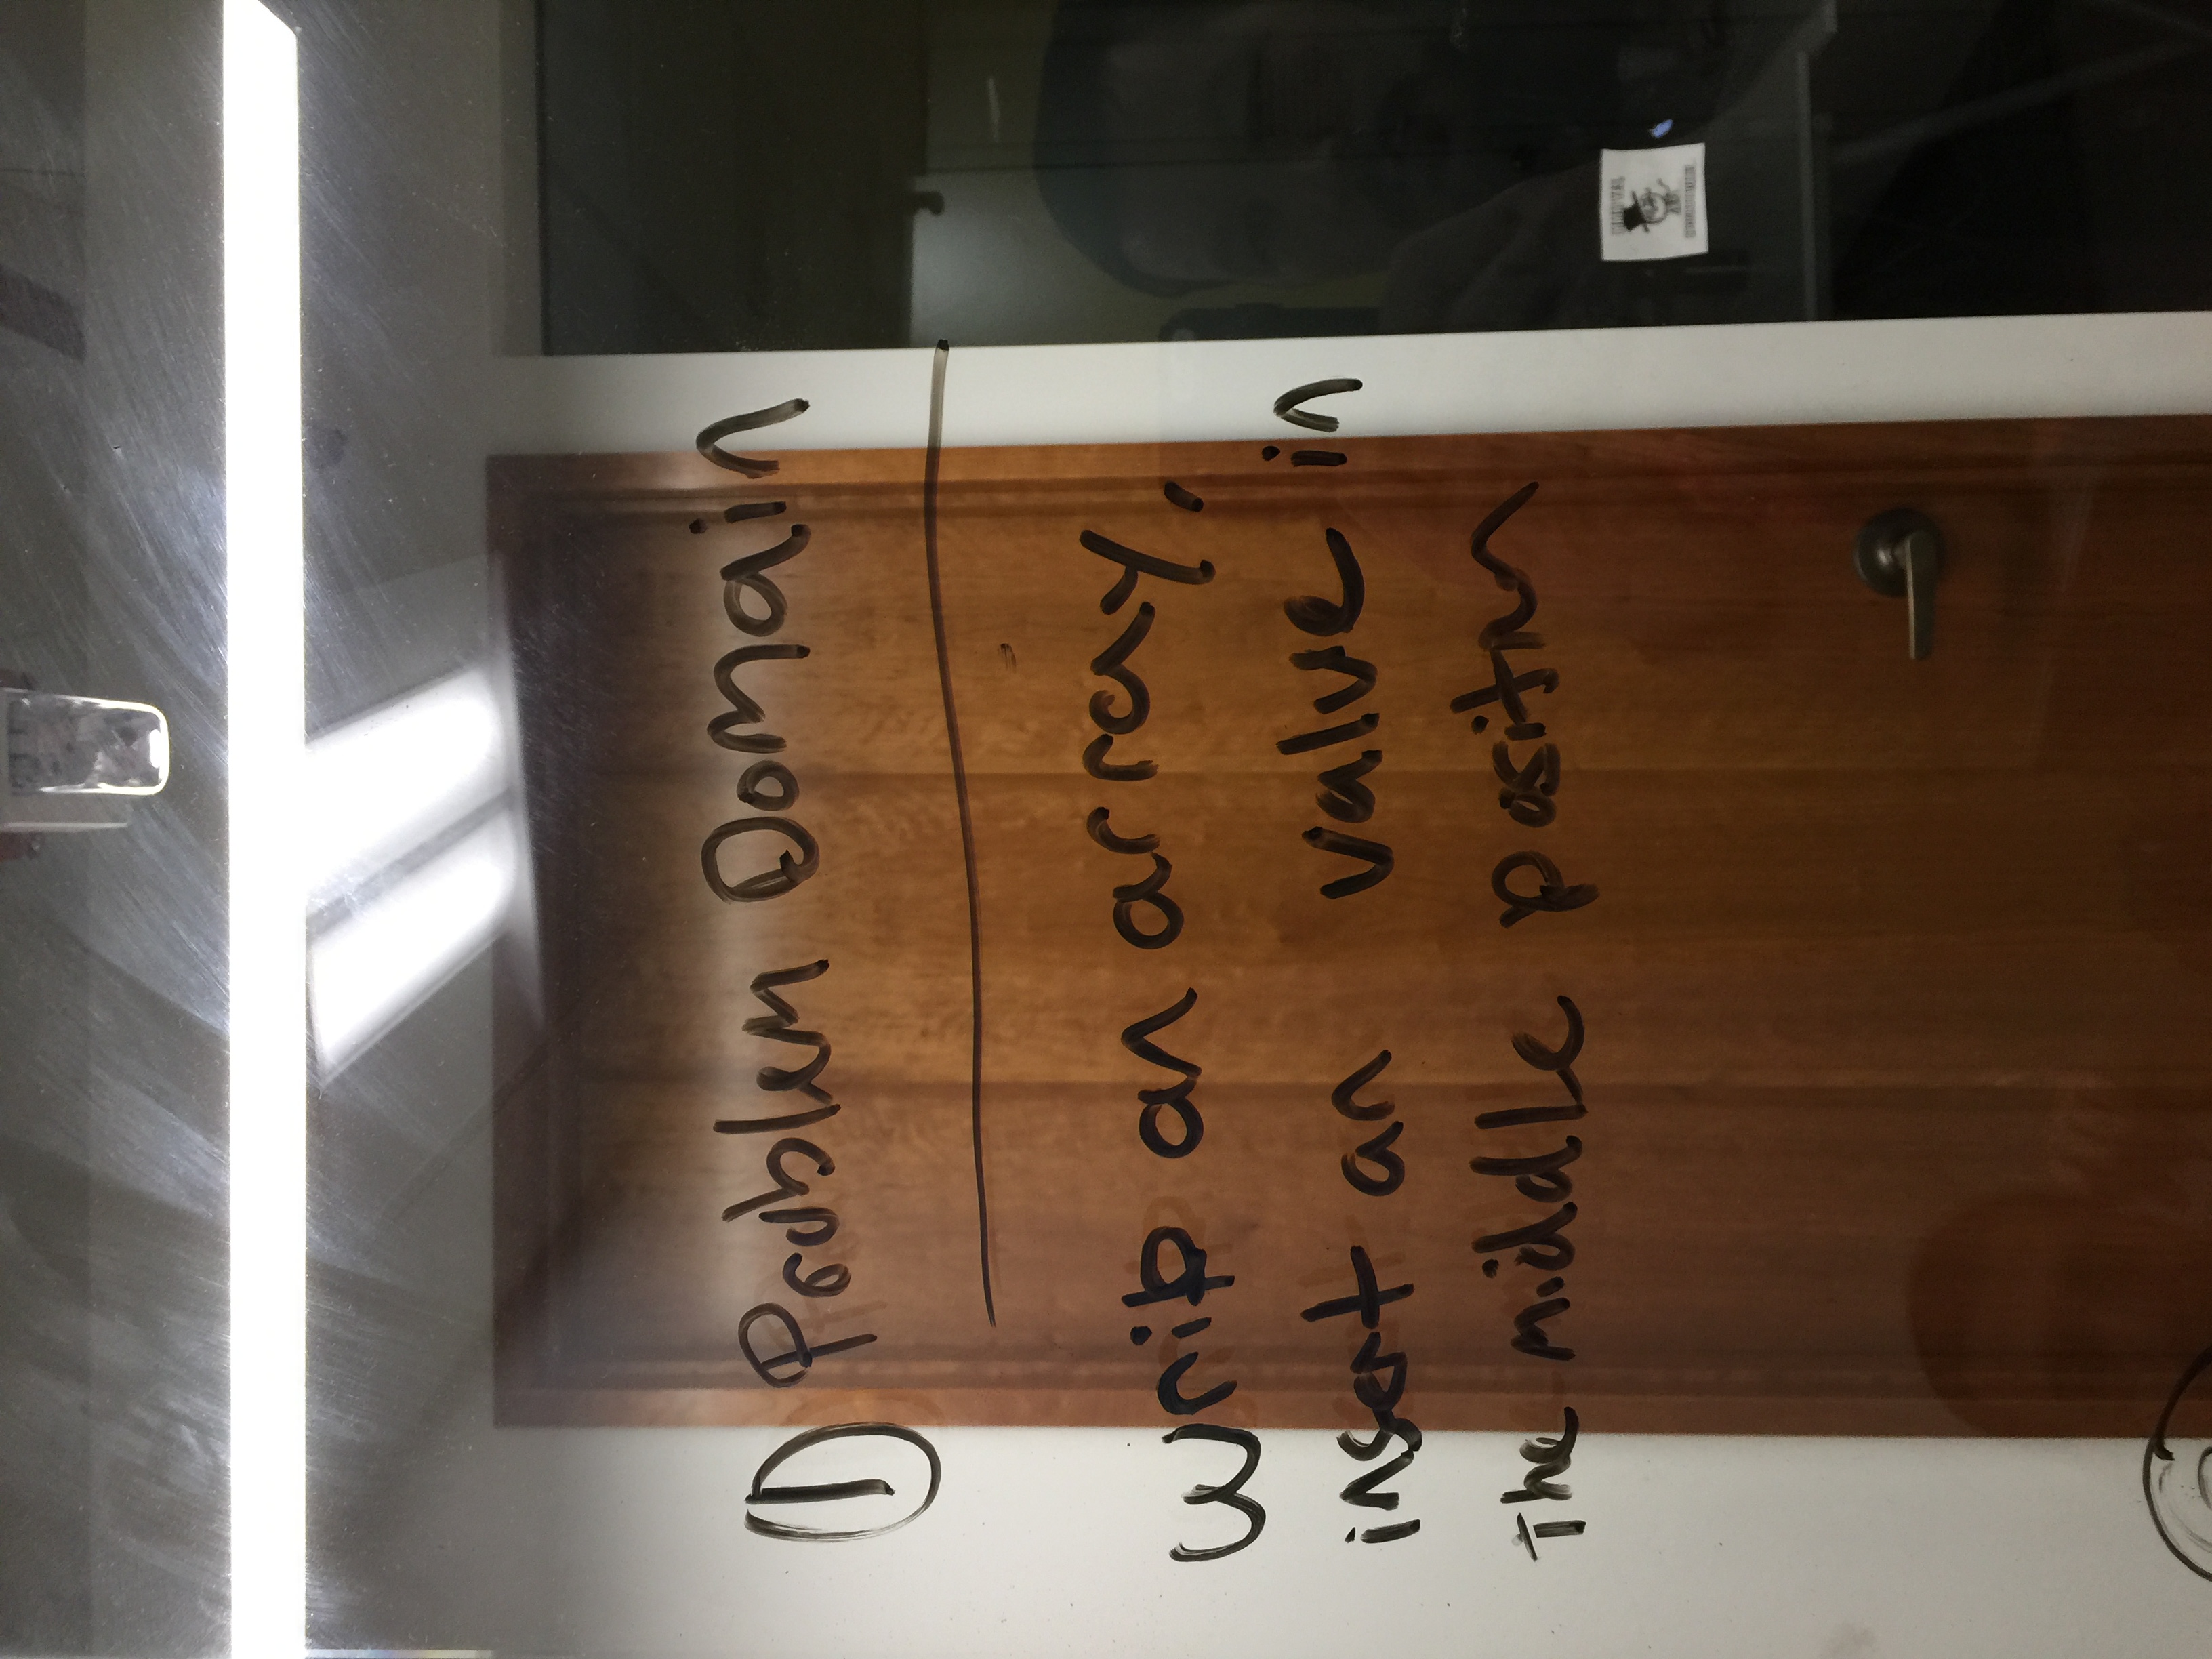 ① Problem Domain
Write an array,
insert an value in
the middle position